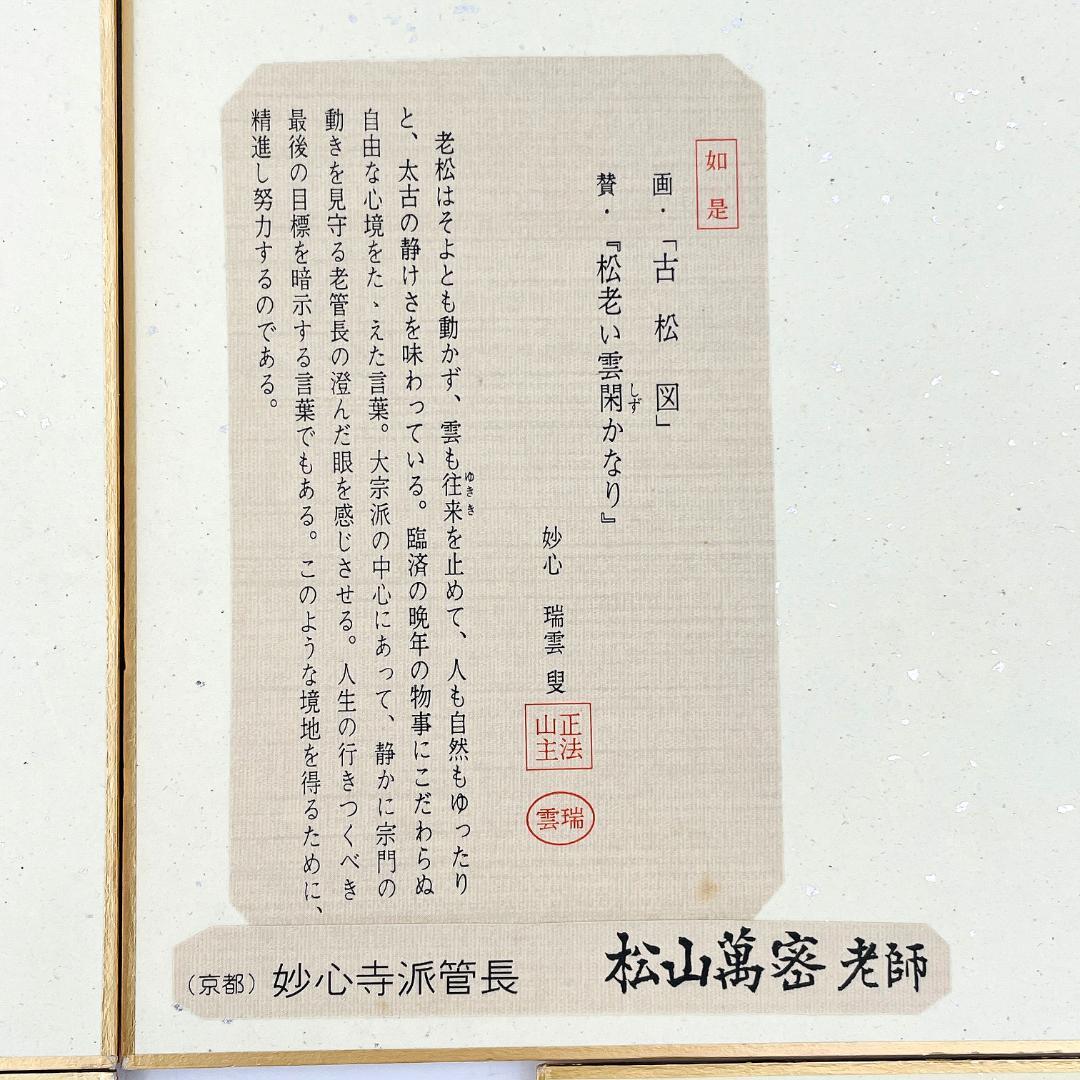 如是
画・「古松図」
賛・『松老い雲閑かなり』
しず
妙心 瑞雲叟
正法山主
瑞雲
老松はそよとも動かず、雲も往来を止めて、人も自然もゆったり
ゆきき
と、太古の静けさを味わっている。臨済の晩年の物事にこだわらぬ
自由な心境をたゝえた言葉。大宗派の中心にあって、静かに宗門の
動きを見守る老管長の澄んだ眼を感じさせる。人生の行きつくべき
最後の目標を暗示する言葉でもある。このような境地を得るために、
精進し努力するのである。
(京都) 妙心寺派管長 松山萬密 老師